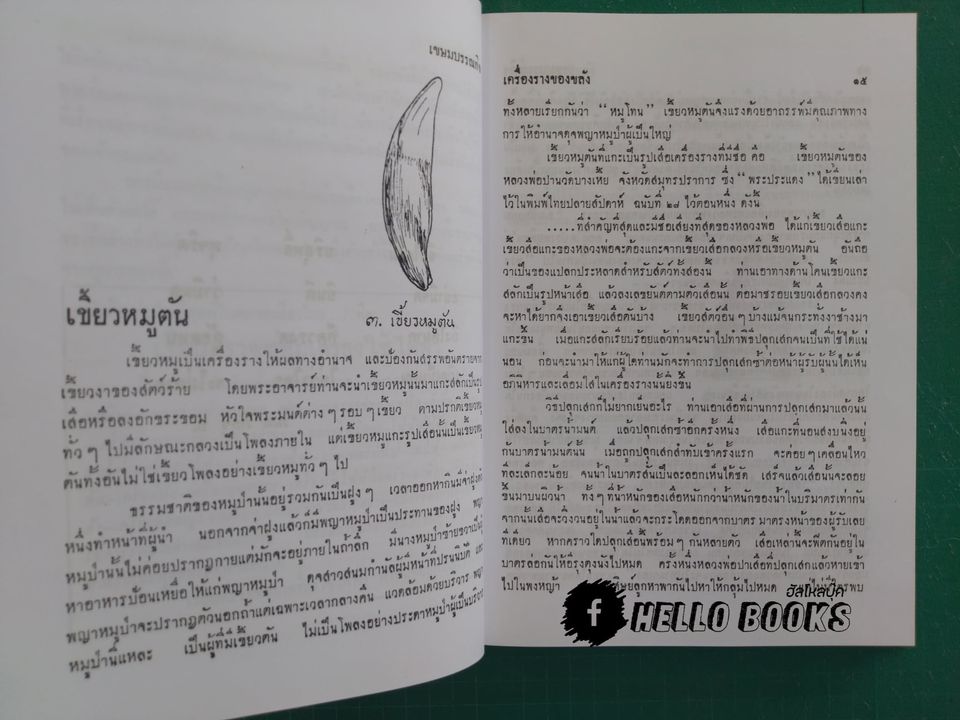 เขษมบรรณกิจ
เขี้ยวหมูตัน
๓. เขี้ยวหมูตัน
เขี้ยวหมูเป็นเครื่องรางให้ผลทางอำนาจ และป้องกันสรรพอันตรายจาก
เขี้ยวงาของสัตว์ร้าย โดยพระอาจารย์ท่านจะนำเขี้ยวหมูนั้นมาแกะสลักเป็นรูป
เสือหรือลงอักขระขอม หัวใจพระมนต์ต่าง ๆ รอบ ๆ เขี้ยว ตามปรกติเขี้ยวหมู
ทั่ว ๆ ไปมีลักษณะกลวงเป็นโพลงภายใน แต่เขี้ยวหมูแกะรูปเสือนั้นเป็นเขี้ยวหมู
ตันทั้งอันไม่ใช่เขี้ยวโพลงอย่างเขี้ยวหมูทั่ว ๆ ไป
ธรรมชาติของหมูป่านั้นอยู่รวมกันเป็นฝูง ๆ เวลาออกหากินมีจ่าฝูงตัว
หนึ่งทำหน้าที่ผู้นำ นอกจากจ่าฝูงแล้วก็มีพญาหมูป่าเป็นประทานของฝูง พญา
หมูป่านั้นไม่ค่อยปรากฏกายแต่มักจะอยู่ภายในถ้ำลึก มีนางหมูป่าซ้ายขวาเป็นผู้
หาอาหารป้อนเหยื่อให้แก่พญาหมูป่า ดุจสาวสนมกำนัลผู้มีหน้าที่ปรนนิบัติ และ
พญาหมูป่าจะปรากฏตัวนอกถ้ำแต่เฉพาะเวลากลางคืน แวดล้อมด้วยบริวาร พญา
หมูป่านี่แหละ เป็นผู้ที่มีเขี้ยวตัน ไม่เป็นโพลงอย่างประดาหมูป่าผู้เป็นบริวาร
เครื่องรางของขลัง ๑๕
ทั้งหลายเรียกกันว่า “หมูโทน” เขี้ยวหมูตันจึงแรงด้วยอาถรรพ์มีคุณภาพทาง
การให้อำนาจดุจพญาหมูป่าผู้เป็นใหญ่
เขี้ยวหมูตันที่แกะเป็นรูปเสือเครื่องรางที่มีชื่อ คือ เขี้ยวหมูตันของ
หลวงพ่อปานวัดบางเหี้ย จังหวัดสมุทรปราการ ซึ่ง “พระประแดง” ได้เขียนเล่า
ไว้ในพิมพ์ไทยปลายสัปดาห์ ฉบับที่ ๒๘ ไว้ตอนหนึ่ง ดังนี้
.....ที่สำคัญที่สุดและมีชื่อเสียงที่สุดของหลวงพ่อ ได้แก่เขี้ยวเสือแกะ
เขี้ยวเสือแกะของหลวงพ่อจะต้องแกะจากเขี้ยวเสือกลวงหรือเขี้ยวหมูตัน อันถือ
ว่าเป็นของแปลกประหลาดสำหรับสัตว์ทั้งสองนี้ ท่านเอาทางด้านโคนเขี้ยวแกะ
สลักเป็นรูปหน้าเสือ แล้วลงเลขยันต์ตามตัวเสือนั้น ต่อมาชรอยเขี้ยวเสือกลวงคง
จะหาได้ยากจึงเอาเขี้ยวเสือตันบ้าง เขี้ยวสัตว์อื่น ๆ บ้างแม้จนกระทั่งงาช้างมา
แกะขึ้น เมื่อแกะสลักเรียบร้อยแล้วท่านจะนำไปทำพิธีปลุกเสกจนเป็นที่ใช้ได้แน่
นอน ก่อนจะนำมาให้แก่ผู้ใดท่านมักจะทำการปลุกเสกซ้ำต่อหน้าผู้รับผู้นั้นได้เห็น
อภินิหารและเลื่อมใสในเครื่องรางนั้นยิ่งขึ้น
วิธีปลุกเสกก็ไม่ยากเย็นอะไร ท่านเอาเสือที่ผ่านการปลุกเสกมาแล้วนั้น
ใส่ลงในบาตรน้ำมนต์ แล้วปลุกเสกซ้ำอีกครั้งหนึ่ง เสือแกะที่นอนสงบนิ่งอยู่
ก้นบาตรน้ำมนต์นั้น เมื่อถูกปลุกเสกสำทับเข้าครั้งแรก จะค่อย ๆ เคลื่อนไหว
ทีละเล็กละน้อย จนน้ำในบาตรสั่นเป็นละลอกเห็นได้ชัด เสร็จแล้วเสือนั้นจะลอย
ขึ้นมาบนผิวน้ำ ทั้ง ๆ ที่น้ำหนักของเสือหนักกว่าน้ำหนักของน้ำในปริมาตรเท่ากัน
จากนั้นเสือจะวิ่งวนอยู่ในน้ำแล้วจะกระโดดออกจากบาตร มาตรงหน้าของผู้รับเลย
ทีเดียว หากคราวใดปลุกเสือพร้อม ๆ กันหลายตัว เสือเหล่านั้นจะพัดกันอยู่ใน
บาตรลั่นกันให้อึรุงตุงนังไปหมด ครั้งหนึ่งหลวงพ่อป่าเสือที่ปลุกเสกแล้วหายเข้า
ไปในพงหญ้า ลูกหาพากันไปหาให้กลุ้มไปหมด
ฮัลโหลบุ๊ค
f HELLO BOOKS